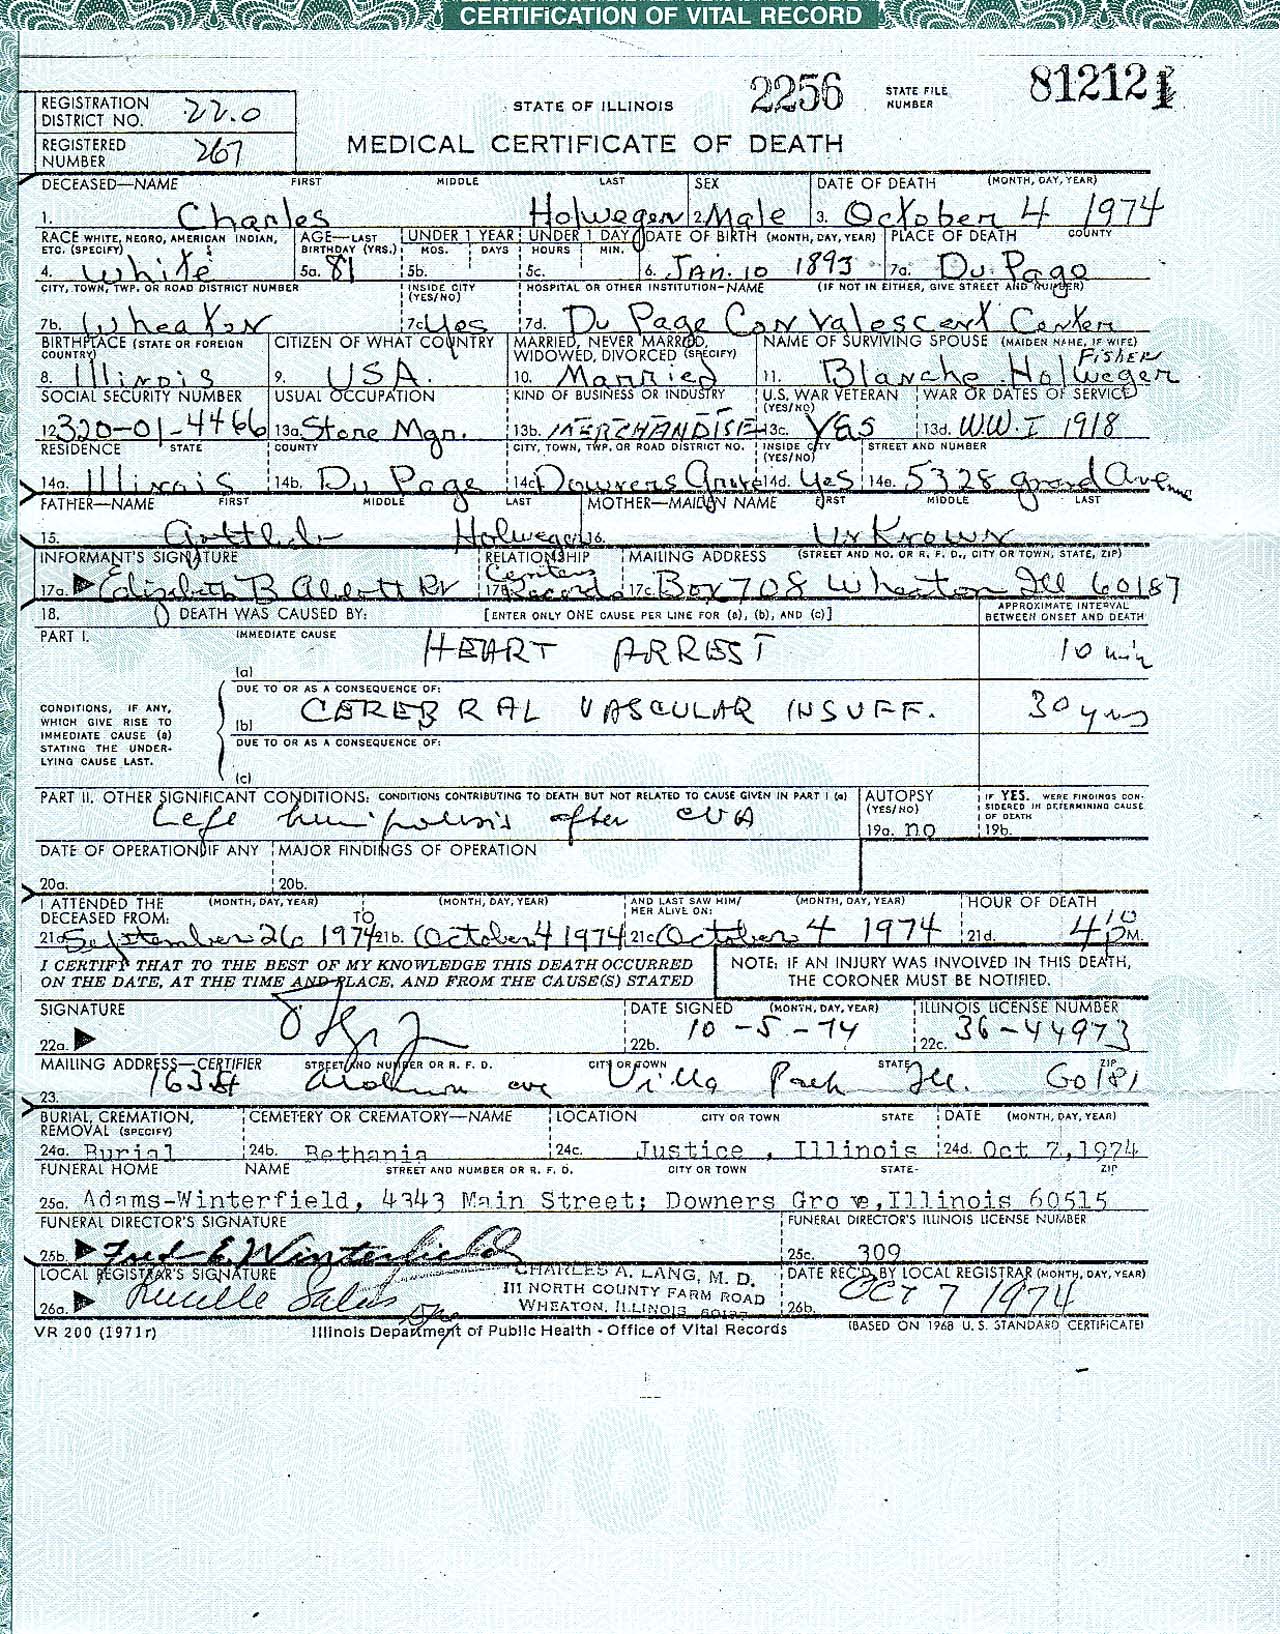 CERTIFICATION OF VITAL RECORD
REGISTRATION DISTRICT NO. 22.0
REGISTERED NUMBER 267
STATE OF ILLINOIS
2256
STATE FILE NUMBER 812121
MEDICAL CERTIFICATE OF DEATH
DECEASED—NAME FIRST MIDDLE LAST SEX DATE OF DEATH (MONTH, DAY, YEAR)
1. Charles Holweger 2. Male 3. October 4 1974
RACE WHITE, NEGRO, AMERICAN INDIAN, ETC. (SPECIFY) AGE—LAST BIRTHDAY (YRS.) UNDER 1 YEAR MOS. DAYS UNDER 1 DAY HOURS MIN. DATE OF BIRTH (MONTH, DAY, YEAR) PLACE OF DEATH COUNTY
4. White 5a. 81 5b. 5c. 6. JAN. 10 1893 7a. Du Page
CITY, TOWN, TWP. OR ROAD DISTRICT NUMBER INSIDE CITY (YES/NO) HOSPITAL OR OTHER INSTITUTION—NAME (IF NOT IN EITHER, GIVE STREET AND NUMBER)
7b. Wheaton 7c. Yes 7d. Du Page Convalescent Center
BIRTHPLACE (STATE OR FOREIGN COUNTRY) CITIZEN OF WHAT COUNTRY MARRIED, NEVER MARRIED, WIDOWED, DIVORCED (SPECIFY) NAME OF SURVIVING SPOUSE (MAIDEN NAME, IF WIFE)
FISHER
8. Illinois 9. USA. 10. Married 11. Blanche Holweger
SOCIAL SECURITY NUMBER USUAL OCCUPATION KIND OF BUSINESS OR INDUSTRY U.S. WAR VETERAN (YES/NO) WAR OR DATES OF SERVICE
12. 320-01-4466 13a. Store Mgr. 13b. MERCHANDISE 13c. Yes 13d. WW. I 1918
RESIDENCE STATE COUNTY CITY, TOWN, TWP. OR ROAD DISTRICT NO. INSIDE CITY (YES/NO) STREET AND NUMBER
14a. Illinois 14b. Du Page 14c. Downers Grove 14d. Yes 14e. 5328 grand Avenue
FATHER—NAME FIRST MIDDLE LAST MOTHER—MAIDEN NAME FIRST MIDDLE LAST
15. Gottlieb Holweger 16. Unknown
INFORMANT'S SIGNATURE RELATIONSHIP MAILING ADDRESS (STREET AND NO. OR R. F. D., CITY OR TOWN, STATE, ZIP)
17a. Elizabeth B Abbott RN 17b. Centers Records 17c. Box 708 Wheaton Ill 60187
18. DEATH WAS CAUSED BY: [ENTER ONLY ONE CAUSE PER LINE FOR (a), (b), AND (c)] APPROXIMATE INTERVAL BETWEEN ONSET AND DEATH
PART I. IMMEDIATE CAUSE
(a) HEART ARREST 10 min
DUE TO OR AS A CONSEQUENCE OF:
CONDITIONS, IF ANY, WHICH GIVE RISE TO IMMEDIATE CAUSE (a) STATING THE UNDER-LYING CAUSE LAST.
(b) CEREBRAL VASCULAR INSUFF. 30 yrs
DUE TO OR AS A CONSEQUENCE OF:
(c)
PART II. OTHER SIGNIFICANT CONDITIONS: CONDITIONS CONTRIBUTING TO DEATH BUT NOT RELATED TO CAUSE GIVEN IN PART I (a) AUTOPSY (YES/NO) IF YES. WERE FINDINGS CON-SIDERED IN DETERMINING CAUSE OF DEATH
Left after CVA 19a. no 19b.
DATE OF OPERATION, IF ANY MAJOR FINDINGS OF OPERATION
20a. 20b.
I ATTENDED THE DECEASED FROM: (MONTH, DAY, YEAR) TO (MONTH, DAY, YEAR) AND LAST SAW HIM/HER ALIVE ON: (MONTH, DAY, YEAR) HOUR OF DEATH
21a. September 26 1974 21b. October 4 1974 21c. October 4 1974 21d. 4 10 P M.
I CERTIFY THAT TO THE BEST OF MY KNOWLEDGE THIS DEATH OCCURRED ON THE DATE, AT THE TIME AND PLACE, AND FROM THE CAUSE(S) STATED
NOTE: IF AN INJURY WAS INVOLVED IN THIS DEATH, THE CORONER MUST BE NOTIFIED.
SIGNATURE DATE SIGNED (MONTH, DAY, YEAR) ILLINOIS LICENSE NUMBER
22a. 22b. 10-5-74 22c. 36-44973
MAILING ADDRESS—CERTIFIER STREET AND NUMBER OR R. F. D. CITY OR TOWN STATE ZIP
23. ave Villa Park Ill. 60181
BURIAL, CREMATION, REMOVAL (SPECIFY) CEMETERY OR CREMATORY—NAME LOCATION CITY OR TOWN STATE DATE (MONTH, DAY, YEAR)
24a. Burial 24b. Bethania 24c. Justice , Illinois 24d. Oct 7,1974
FUNERAL HOME NAME STREET AND NUMBER OR R. F. D. CITY OR TOWN STATE- ZIP
25a. Adams-Winterfield, 4343 Main Street; Downers Grove,Illinois 60515
FUNERAL DIRECTOR'S SIGNATURE FUNERAL DIRECTOR'S ILLINOIS LICENSE NUMBER
25b. Fred E. Winterfield 25c. 309
LOCAL REGISTRAR'S SIGNATURE CHARLES A. LANG, M. D. DATE REC'D. BY LOCAL REGISTRAR (MONTH, DAY, YEAR)
111 NORTH COUNTY FARM ROAD
26a. Lucille WHEATON, ILLINOIS 60187 26b. OCT 7 1974
VR 200 (1971r) Illinois Department of Public Health - Office of Vital Records (BASED ON 1968 U.S. STANDARD CERTIFICATE)
VOID